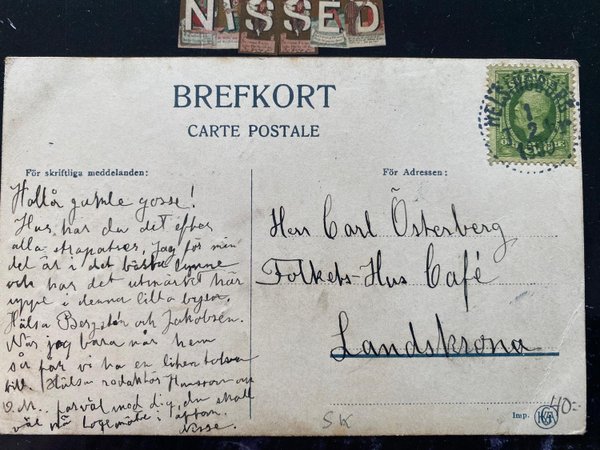 NISSED
BREFKORT
CARTE POSTALE
För skriftliga meddelanden:
För Adressen:
Hallå gamle gosse!
Hur har du det efter
alla strapatser, jag för min
del är i det bästa lynne
och har det utmärkt här
uppe i denna lilla byen.
Hälsa och Jakobsen.
När jag bara når hem
så får vi ha en liten
till. Hälsa redaktör
farväl med dig, du skall
väl på i afton.
Nisse.
Herr Carl Österberg
Folkets-Hus Café
Landskrona
SK
Imp.
40:-